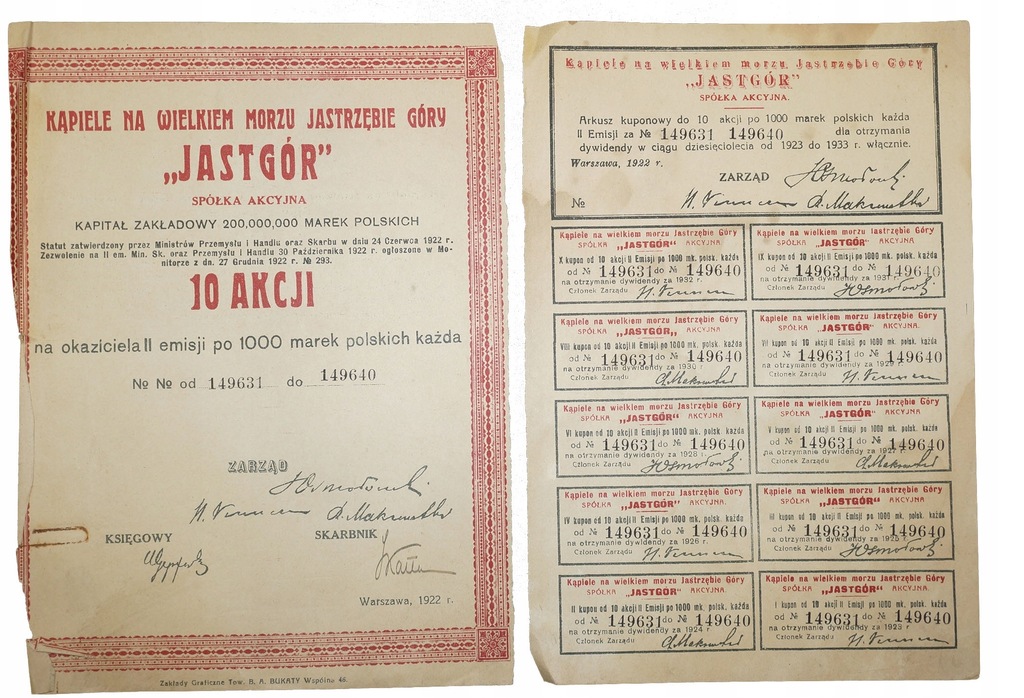 KĄPIELE NA WIELKIEM MORZU JASTRZĘBIE GÓRY
„JASTGÓR”
SPÓŁKA AKCYJNA
KAPITAŁ ZAKŁADOWY 200,000,000 MAREK POLSKICH
Statut zatwierdzony przez Ministrów Przemysłu i Handlu oraz Skarbu w dniu 24 Czerwca 1922 r.
Zezwolenie na II em. Min. Sk. oraz Przemysłu i Handlu 30 Października 1922 r. ogłoszone w Mo-
nitorze z dn. 27 Grudnia 1922 r. № 293.
10 AKCJI
na okaziciela II emisji po 1000 marek polskich każda
№ № od 149631 do 149640
ZARZĄD
KSIĘGOWY
SKARBNIK
Warszawa, 1922 r.
Zakłady Graficzne Tow. B. A. BUKATY Wspólna 46.
Kąpiele na wielkiem morzu Jastrzębie Góry
„JASTGÓR”
SPÓŁKA AKCYJNA.
Arkusz kuponowy do 10 akcji po 1000 marek polskich każda
II Emisji za № 149631 149640 dla otrzymania
dywidendy w ciągu dziesięciolecia od 1923 do 1933 r. włącznie.
Warszawa, 1922 r.
ZARZĄD
№
Kąpiele na wielkiem morzu Jastrzębie Góry
SPÓŁKA „JASTGÓR” AKCYJNA
X kupon od 10 akcji II Emisji po 1000 mk. polsk. każda
od № 149631 do № 149640
na otrzymanie dywidendy za 1932 r.
Członek Zarządu
Kąpiele na wielkiem morzu Jastrzębie Góry
SPÓŁKA „JASTGÓR” AKCYJNA
IX kupon od 10 akcji II Emisji po 1000 mk. polsk. każda
od № 149631 do № 149640
na otrzymanie dywidendy za 1931 r.
Członek Zarządu
Kąpiele na wielkiem morzu Jastrzębie Góry
SPÓŁKA „JASTGÓR„ AKCYJNA
VIII kupon od 10 akcji II Emisji po 1000 mk. polsk. każda
od № 149631 do № 149640
na otrzymanie dywidendy za 1930 r.
Członek Zarządu
Kąpiele na wielkiem morzu Jastrzębie Góry
SPÓŁKA „JASTGÓR” AKCYJNA.
VII kupon od 10 akcji II Emisji po 1000 mk. polsk. każda
od № 149631 do № 149640
na otrzymanie dywidendy za 1929 r.
Członek Zarządu
Kąpiele na wielkiem morzu Jastrzębie Góry
SPÓŁKA „JASTGÓR” AKCYJNA
VI kupon od 10 akcji II Emisji po 1000 mk. polsk. każda
od № 149631 do № 149640
na otrzymanie dywidendy za 1928 r.
Członek Zarządu
Kąpiele na wielkiem morzu Jastrzębie Góry
SPÓŁKA „JASTGÓR” AKCYJNA
V kupon od 10 akcji II Emisji po 1000 mk. polsk. każda
od № 149631 do № 149640
na otrzymanie dywidendy za 1927 r.
Członek Zarządu
Kąpiele na wielkiem morzu Jastrzębie Góry
SPÓŁKA „JASTGÓR” AKCYJNA.
IV kupon od 10 akcji II Emisji po 1000 mk. polsk. każda
od № 149631 do № 149640
na otrzymanie dywidendy za 1926 r.
Członek Zarządu
Kąpiele na wielkiem morzu Jastrzębie Góry
SPÓŁKA „JASTGÓR” AKCYJNA
III kupon od 10 akcji II Emisji po 1000 mk. polsk. każda
od № 149631 do № 149640
na otrzymanie dywidendy za 1925 r.
Członek Zarządu
Kąpiele na wielkiem morzu Jastrzębie Góry
SPÓŁKA „JASTGÓR” AKCYJNA.
II kupon od 10 akcji II Emisji po 1000 mk. polsk. każda
od № 149631 do № 149640
na otrzymanie dywidendy za 1924 r.
Członek Zarządu
Kąpiele na wielkiem morzu Jastrzębie Góry
SPÓŁKA „JASTGÓR” AKCYJNA.
I kupon od 10 akcji II Emisji po 1000 mk. polsk. każda
od № 149631 do № 149640
na otrzymanie dywidendy za 1923 r.
Członek Zarządu